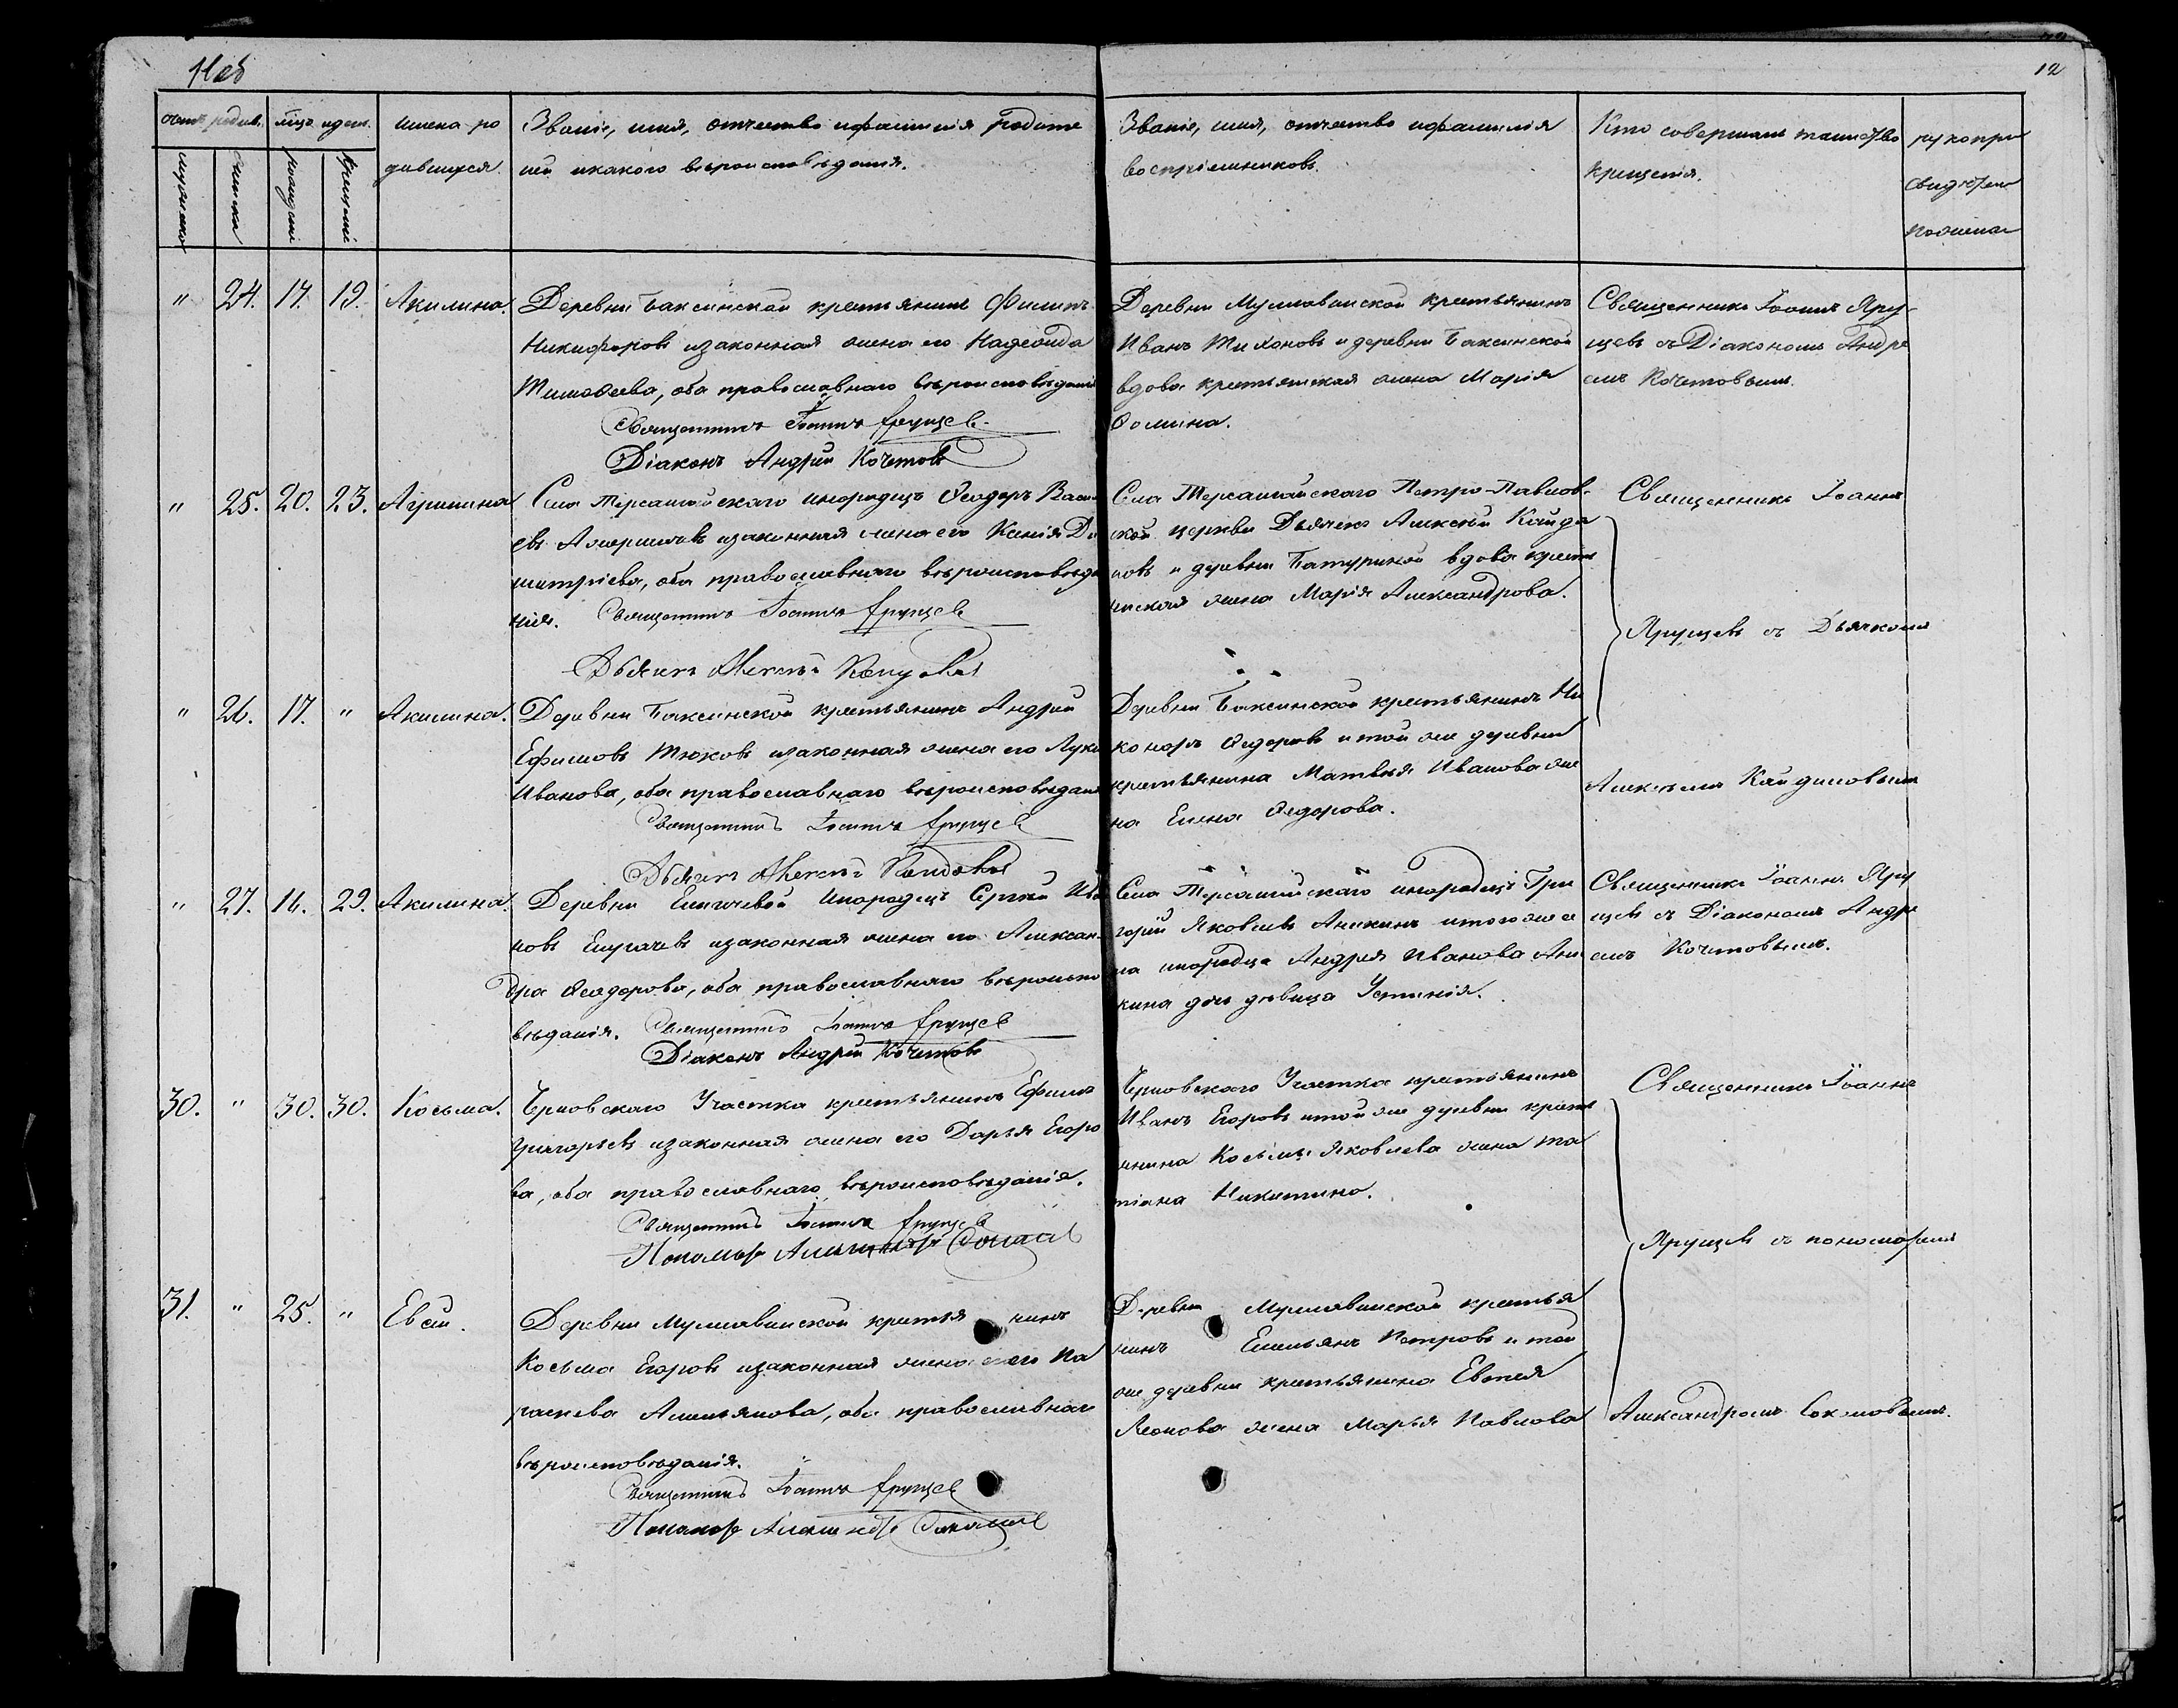 12
Счетъ родив.
мѣсяцъ и день.
имена ро
дившихся.
Званіе, имя, отчество и фамилія родите
лей и какого вѣроисповѣданія.
Званіе, имя, отчество и фамилія
воспріемниковъ.
Кто совершалъ таинство
крещенія.
рукопри
мужеска
женска
рожденія
крещенія
" 24. 17. 19. Акилина.
Деревни Баксинской крестьянинъ Филипъ
Никифоровъ и законная жена его
Тимоѳеева, оба православнаго вѣроисповѣданія
Священникъ Іоаннъ Ярущевъ
Діаконъ Андрей Кочетовъ
Деревни Муллавинской крестьянинъ
Иванъ Тихоновъ и деревни Баксинской
вдова крестьянская жена Марія
Ѳомина.
Священникъ Іоаннъ Яру
щевъ съ Діакономъ Андре
емъ Кочетовымъ.
" 25. 20. 23. Агрипина
Села Терсалгайскаго инородецъ Ѳеодоръ Васи
евъ и законная жена его Ксенія Ди
митріева, оба православнаго вѣроисповѣда
нія. Священникъ Іоаннъ Ярущевъ
Дьячекъ Алексѣй
Села Терсалгайскаго Петро-Павлов
ской церкви Дьячекъ Алексѣй Кайда
ловъ и деревни Батуриной вдова кресть
янская жена Марія Александрова.
Священникъ Іоаннъ
Ярущевъ съ Дьячкомъ
" 26. 17. " Акилина.
Деревни Баксинской крестьянинъ Андрей
Ефимовъ Тюковъ и законная жена его
Иванова, оба православнаго вѣроисповѣданія
Священникъ Іоаннъ Ярущевъ
Дьячекъ Алексѣй
Деревни Баксинской крестьянинъ Ни
коноръ Ѳедоровъ и той же деревни
крестьянина Матвѣя Иванова же
на Елена Ѳедорова.
Алексѣемъ
" 27. 16. 29. Акилина.
Деревни Инородецъ Сергѣй Ива
новъ и законная жена его Алексан
дра Ѳеодорова, оба православнаго вѣроиспо
вѣданія. Священникъ Іоаннъ Ярущевъ
Діаконъ Андрей Кочетовъ
Села Терсалгайскаго инородецъ Гри
горій Яковлевъ Аникинъ и того же се
ла инородца Андрея Иванова Ани
кина дочь дѣвица Устинія.
Священникъ Іоаннъ Яру
щевъ съ Діакономъ Андре
емъ Кочетовымъ.
30. " 30. 30. Косьма.
Черновскаго Участка крестьянинъ Ефимъ
Григорьевъ и законная жена его Дарья Егоро
ва, оба православнаго вѣроисповѣданія.
Священникъ Іоаннъ Ярущевъ
Пономарь Александръ Соколовъ
Черновскаго Участка крестьянинъ
Иванъ Егоровъ и той же деревни кресть
янина Косьмы Яковлева жена Та
тіана Никитина.
Священникъ Іоаннъ
Ярущевъ съ пономаремъ
31. " 25. " Евсей.
Деревни Муллавинской крестья нинъ
Косьма Егоровъ и законная жена его Па
раскева Амельянова, оба православнаго
вѣроисповѣданія.
Священникъ Іоаннъ Ярущевъ
Пономарь Александръ Соколовъ
Деревни Муллавинской крестья
нинъ Емельянъ Петровъ и той
же деревни крестьянина Евсея
Леонова жена Марья Павлова
Александромъ Соколовымъ.